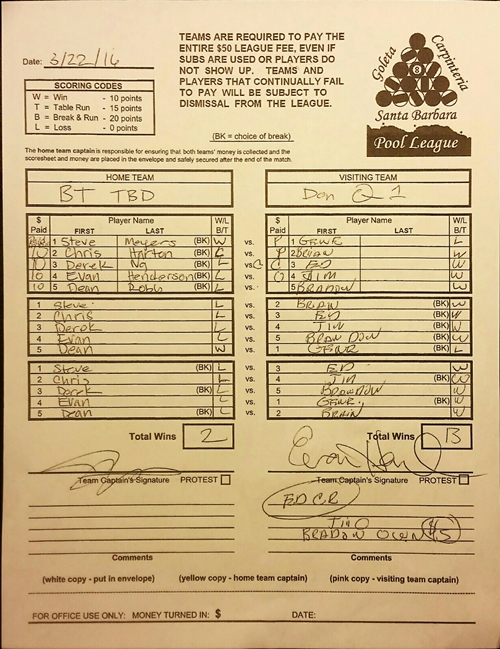 Date: 3/22/16
TEAMS ARE REQUIRED TO PAY THE
ENTIRE $50 LEAGUE FEE, EVEN IF
SUBS ARE USED OR PLAYERS DO
NOT SHOW UP. TEAMS AND
PLAYERS THAT CONTINUALLY FAIL
TO PAY WILL BE SUBJECT TO
DISMISSAL FROM THE LEAGUE.
Goleta Carpinteria
8
Santa Barbara
Pool League
SCORING CODES
W = Win - 10 points
T = Table Run - 15 points
B = Break & Run - 20 points
L = Loss - 0 points
(BK = choice of break)
The home team captain is responsible for ensuring that both teams' money is collected and the
scoresheet and money are placed in the envelope and safely secured after the end of the match.
HOME TEAM VISITING TEAM
BT TBD Don Q 1
$ Paid Player Name FIRST LAST W/L B/T $ Paid Player Name FIRST LAST W/L B/T
1 Steve Meyers (BK) W vs. P 1 GENE L
10 2 Chris Horton (BK) L vs. P 2 BRIAN W
10 3 Derek Ng (BK) L vs. 3 ED W
10 4 Evan Henderson (BK) L vs. 4 JIM W
10 5 Dean Robb (BK) L vs. 5 BRANDON W
1 Steve L vs. 2 BRIAN (BK) W
2 Chris L vs. 3 ED (BK) W
3 Derek L vs. 4 JIM (BK) W
4 Evan L vs. 5 BRANDON (BK) W
5 Dean W vs. 1 GENE (BK) L
1 Steve (BK) L vs. 3 ED W
2 Chris L vs. 4 JIM (BK) W
3 Derek (BK) L vs. 5 BRANDON W
4 Evan L vs. 1 GENE (BK) W
5 Dean (BK) L vs. 2 BRAIN W
Total Wins 2 Total Wins 13
Team Captain's Signature PROTEST Team Captain's Signature PROTEST
ED CR
BRADON OWN $5
Comments Comments
(white copy - put in envelope) (yellow copy - home team captain) (pink copy - visiting team captain)
FOR OFFICE USE ONLY: MONEY TURNED IN: $ DATE: